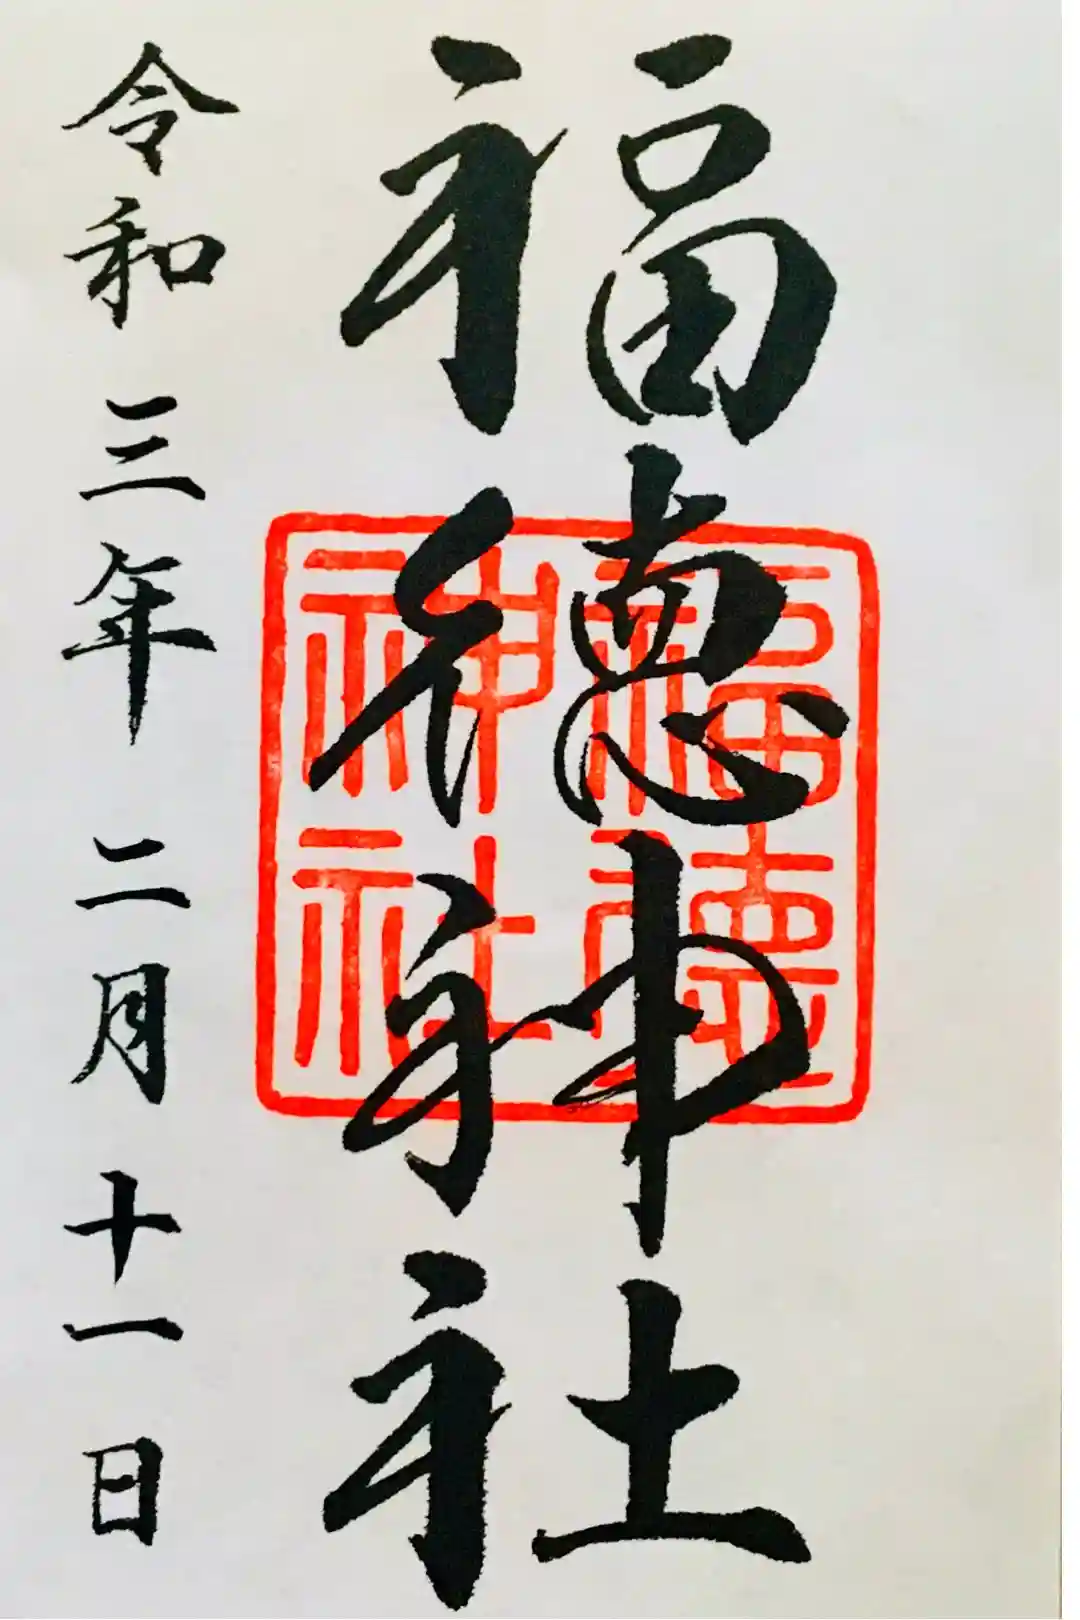 福徳神社
福徳神社
令和三年二月十一日